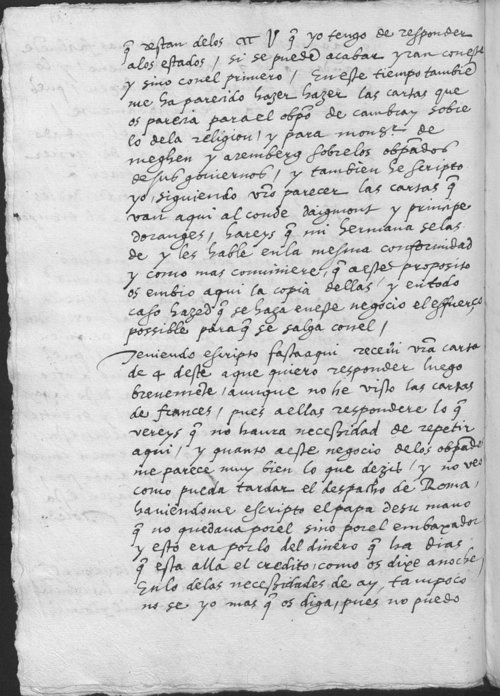 q̃ restan delos q̃ yo tengo de responder
alos estados, si se puede acabar yran con este
y sino con el primero, En este tiempo tambiē
me ha pareido hazer hazer las cartas que
os parecia para el obpõ de cambray sobre
lo dela religion, y para monsr de
meghen y aremberg sobrelos obpados
de sus gouiernos, y tambien he scripto
yo, siguiendo vr̃o parecer las cartas q̃
van aqui al conde daigmont y principe
doranges, hareys q̃ mi hermana selas
de y les hable enla mesma conformidad
y como mas conuiniere, q̃ a este proposito
os embio aqui la copia dellas, y en todo
caso hazed q̃ se haga eneste negocio el esfuerço
possible para q̃ se salga conel,
Teniendo escripto fasta aqui receui vr̃a carta
de 4 deste a que quiero responder luego
breuemēte, aunque no he visto las cartas
de frances, pues a ellas respondere lo q̃
vereys q̃ no haura necessidad de repetir
aqui, y quanto a este negocio delos obpados
me parece muy bien lo que dezis, y no veo
como pueda tardar el despacho de Roma,
hauiendome escripto el papa desu mano
q̃ no quedaua porel sino porel embaxador
y esto era por lo del dinero q̃ ha dias
q̃ esta alla el credito, como os dixe anoche,
En lo delas necessidades de ay, tampoco
no se yo mas q̃ os diga, pues no puedo